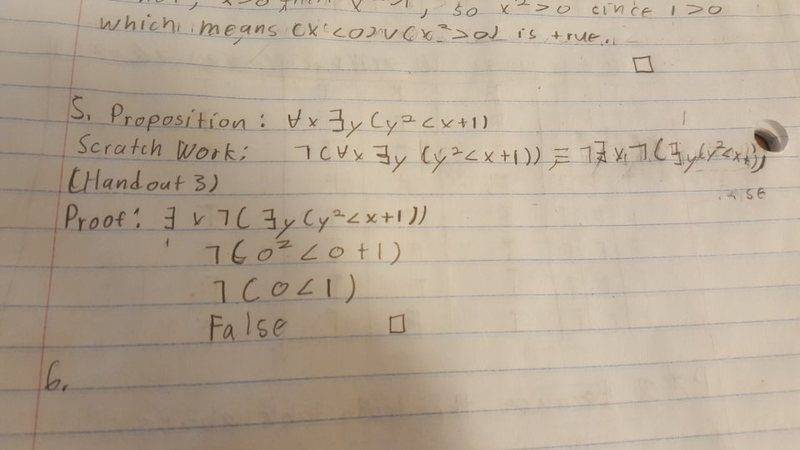 , so x²>0 since 1>0
which means (x<0)∨(x²>0) is true.
□
5. Proposition: ∀x∃y(y²<x+1)
Scratch Work: ¬(∀x∃y(y²<x+1)) ≡ ¬∃x¬(∃y(y²<x
(Handout 3)
Proof: ∃x¬(∃y(y²<x+1))
¬(0²<0+1)
¬(0<1)
False □
6.